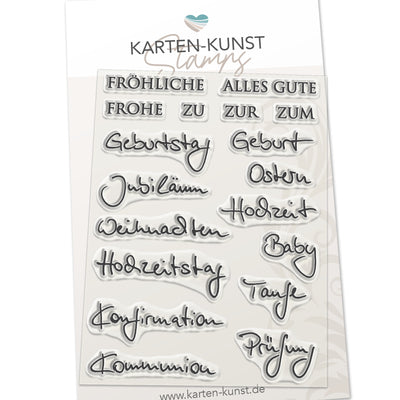 KARTEN-KUNST
Stamps
FRÖHLICHE ALLES GUTE
FROHE ZU ZUR ZUM
Geburtstag Geburt
Ostern
Jubiläum
Hochzeit
Weihnachten
Baby
Hochzeitstag
Taufe
Konfirmation
Prüfung
Kommunion
www.karten-kunst.de